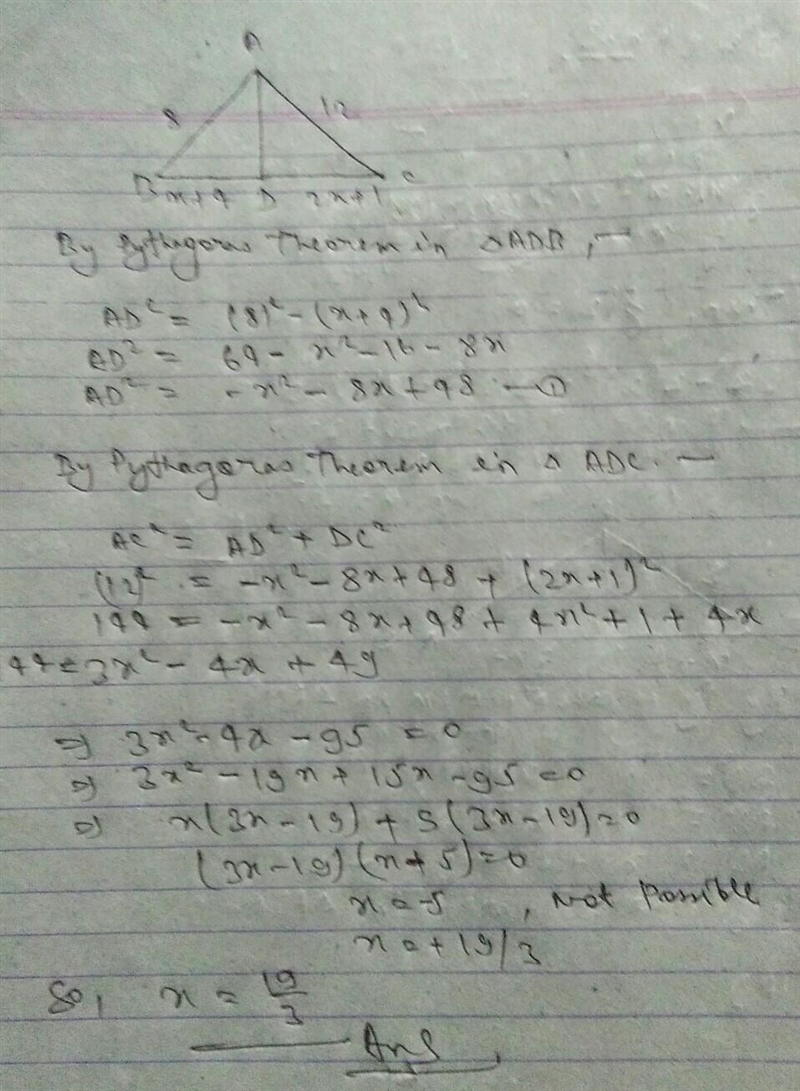 A
8
12
B x+4 D 2x+1 C
By Pythagoras Theorem in △ADB, —
AD² = (8)² - (x+4)²
AD² = 64 - x² - 16 - 8x
AD² = -x² - 8x + 48 — ①
By Pythagoras Theorem in △ ADC. —
AC² = AD² + DC²
(12)² = -x² - 8x + 48 + (2x+1)²
144 = -x² - 8x + 48 + 4x² + 1 + 4x
44 = 3x² - 4x + 49
⇒ 3x² - 4x - 95 = 0
⇒ 3x² - 19x + 15x - 95 = 0
⇒ x(3x - 19) + 5(3x - 19) = 0
(3x - 19)(x + 5) = 0
x = -5 , Not Possible
x = + 19/3
So, x = 19/3
Ans